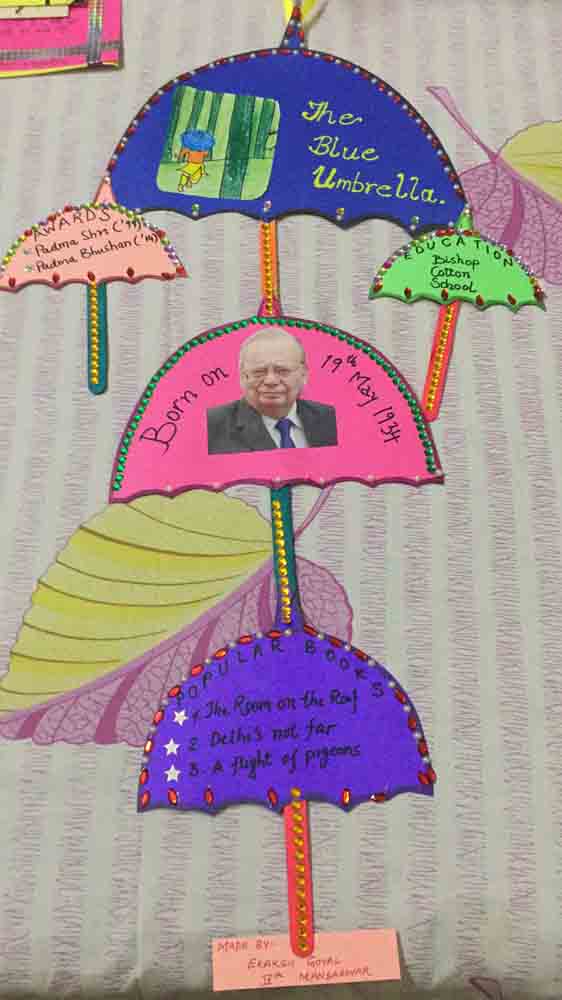 The
Blue
Umbrella.
AWARDS
Padma Shri ('99)
Padma Bhushan ('14)
EDUCATION
Bishop
Cotton
School
Born on 19th May 1934
POPULAR BOOKS
1. The Room on the Roof
2. Delhi's not far
3. A flight of pigeons
MADE BY:-
GOYAL
MANSAROVAR